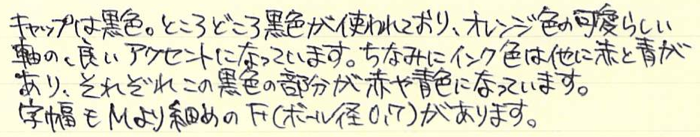 キャップは黒色。ところどころ黒色が使われており、オレンジ色の可愛らしい
軸の、良いアクセントになっています。ちなみにインク色は他に赤と青が
あり、それぞれこの黒色の部分が赤や青色になっています。
字幅もMより細めのF(ボール径0.7)があります。